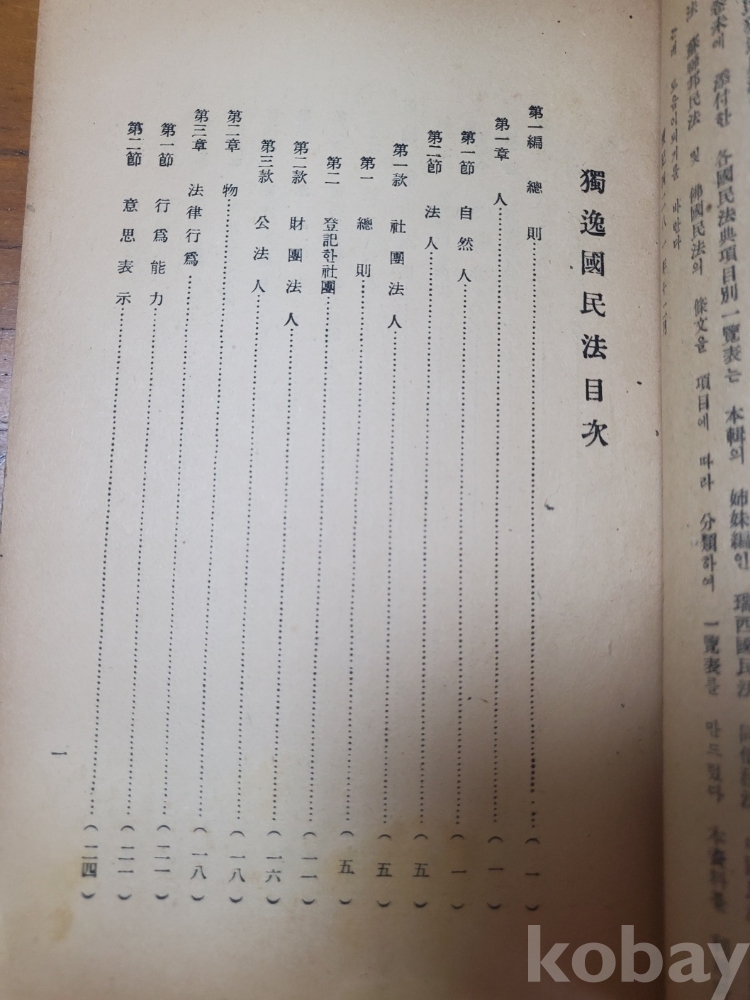 卷末에 添付한 各國民法典項目別一覽表는 本輯의 姉妹編인 瑞西國民法
法 蘇聯邦民法 및 佛國民法의 條文을 項目에 따라 分類하여 一覽表를 만드렀다 本資料를
도움이되기를 바란다
獨逸國民法目次
第一編 總則……(一)
第一章 人……(一)
第一節 自然人……(一)
第二節 法人……(五)
第一款 社團法人……(五)
第一 總則……(五)
第二 登記한社團……(一一)
第二款 財團法人……(一六)
第三款 公法人……(一八)
第二章 物……(一八)
第三章 法律行爲……(二一)
第一節 行爲能力……(二一)
第二節 意思表示……(二四)
一
kobay